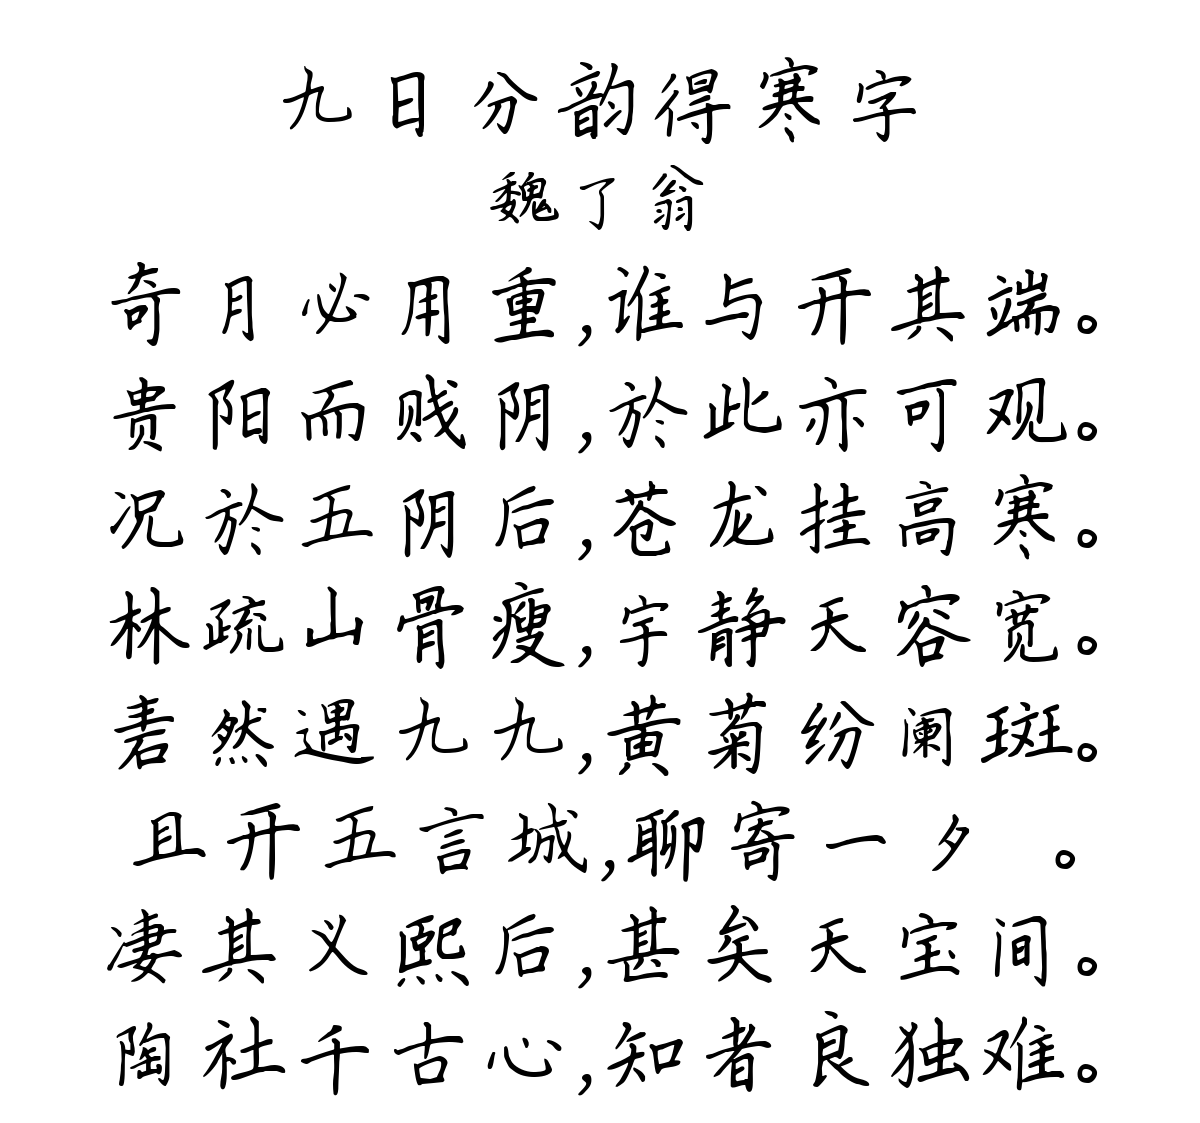 九日分韵得寒字
魏了翁
奇月必用重,谁与开其端。
贵阳而贱阴,於此亦可观。
况於五阴后,苍龙挂高寒。
林疏山骨瘦,宇静天容宽。
砉然遇九九,黄菊纷阑斑。
且开五言城,聊寄一夕 。
凄其义熙后,甚矣天宝间。
陶社千古心,知者良独难。